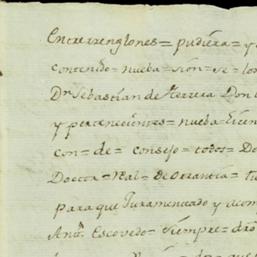 Entrerrenglones = pudiera = y
contenido = nueba = sion = se = lo
Dn Sebastian de Herrera Don
y pertenecientes = nueba =
con = de = consejo = todos = Do
Doctor = Real = De
para que Juramentado y
Anto Escovedo = siempre = dro